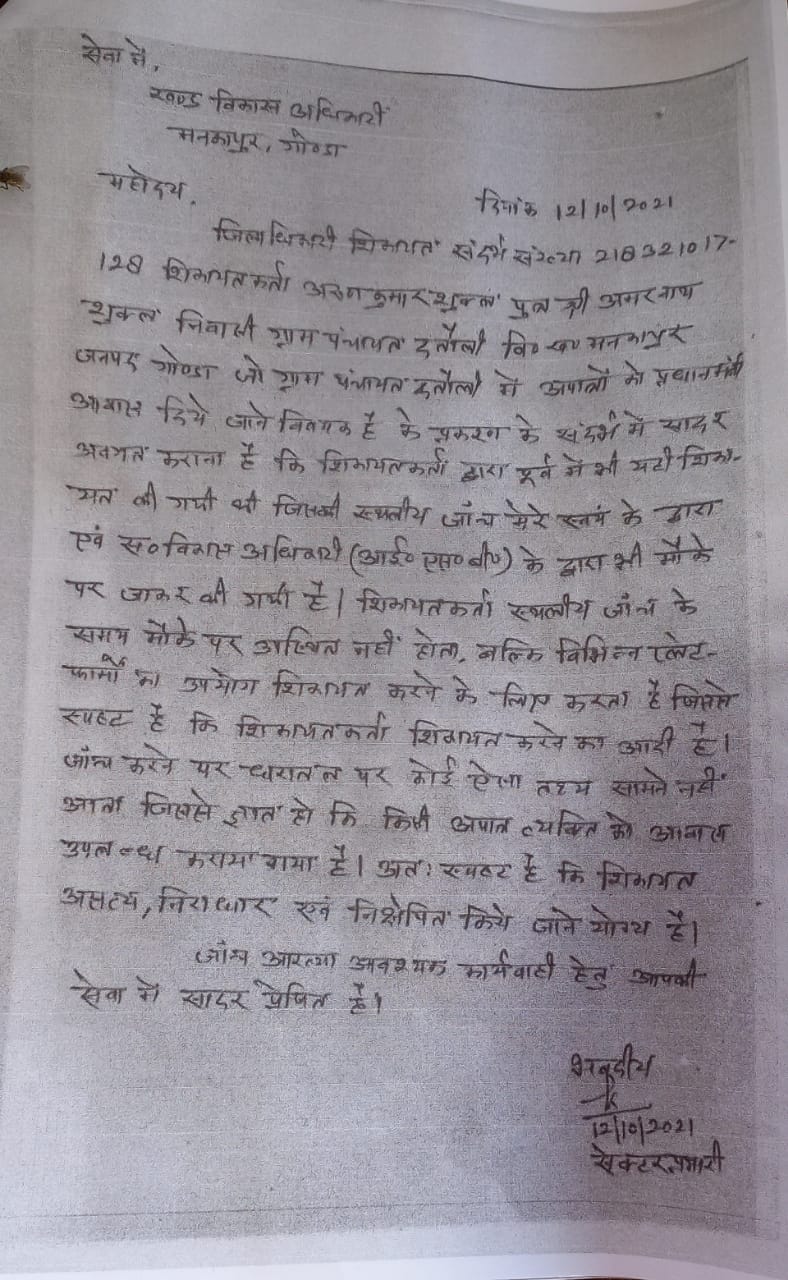 सेवा में,
खण्ड विकास अधिकारी
मनकापुर, गोण्डा
महोदय,
दिनांक 12/10/2021
जिलाधिकारी शिकायत संदर्भ संख्या 218321017-
128 शिकायतकर्ता अरुण कुमार शुक्ल पुत्र श्री अमरनाथ
शुक्ल निवासी ग्राम पंचायत इतौली वि० ख० मनकापुर
जनपद गोण्डा जो ग्राम पंचायत इतौली में अपात्रों को प्रधानमंत्री
आवास दिये जाने विषयक है के प्रकरण के संदर्भ में सादर
अवगत कराना है कि शिकायतकर्ता द्वारा पूर्व में भी यही शिका-
यत की गयी थी जिसकी स्थलीय जाँच मेरे स्वयं के द्वारा
एवं स० विकास अधिकारी (आई० एस० बी०) के द्वारा भी मौके
पर जाकर की गयी है। शिकायतकर्ता स्थलीय जाँच के
समय मौके पर उपस्थित नहीं होता, बल्कि विभिन्न प्लेट-
फार्मों का उपयोग शिकायत करने के लिए करता है जिससे
स्पष्ट है कि शिकायतकर्ता शिकायत करने का आदी है।
जाँच करने पर धरातल पर कोई ऐसा तथ्य सामने नहीं
आता जिससे ज्ञात हो कि किसी अपात्र व्यक्ति को आवास
उपलब्ध कराया गया है। अतः स्पष्ट है कि शिकायत
असत्य, निराधार एवं निक्षेपित किये जाने योग्य है।
जाँच आख्या आवश्यक कार्यवाही हेतु आपकी
सेवा में सादर प्रेषित है।
भवदीय
12/10/2021
सेक्टर प्रभारी